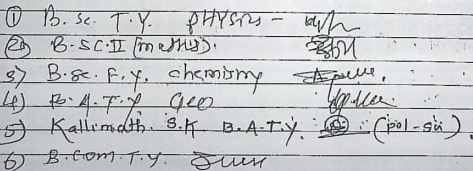 ① B. Sc. T.Y. PHYSICS -
② B.SC.II (maths).
3) B.Sc. F.Y. chemistry
4) B.A.T.Y Geo
5) Kallimath. S.K B.A.T.Y. (pol-sci)
6) B.com.T.Y.